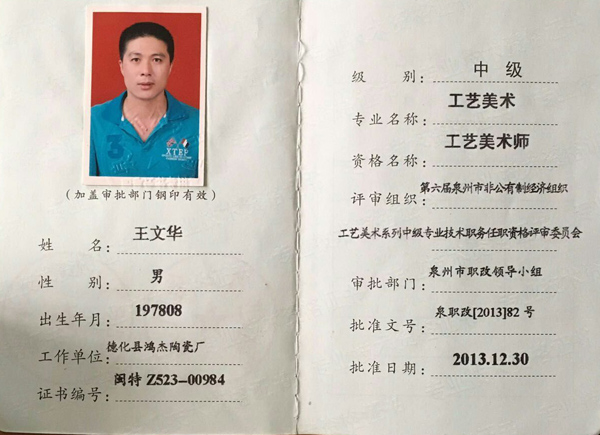 XTEP
(加盖审批部门钢印有效)
姓 名: 王文华
性 别: 男
出生年月: 197808
工作单位: 德化县鸿杰陶瓷厂
证书编号: 闽特 Z523-00984
级 别: 中 级
专业名称: 工艺美术
资格名称: 工艺美术师
评审组织: 第六届泉州市非公有制经济组织
工艺美术系列中级专业技术职务任职资格评审委员会
审批部门: 泉州市职改领导小组
批准文号: 泉职改[2013]82 号
批准日期: 2013.12.30